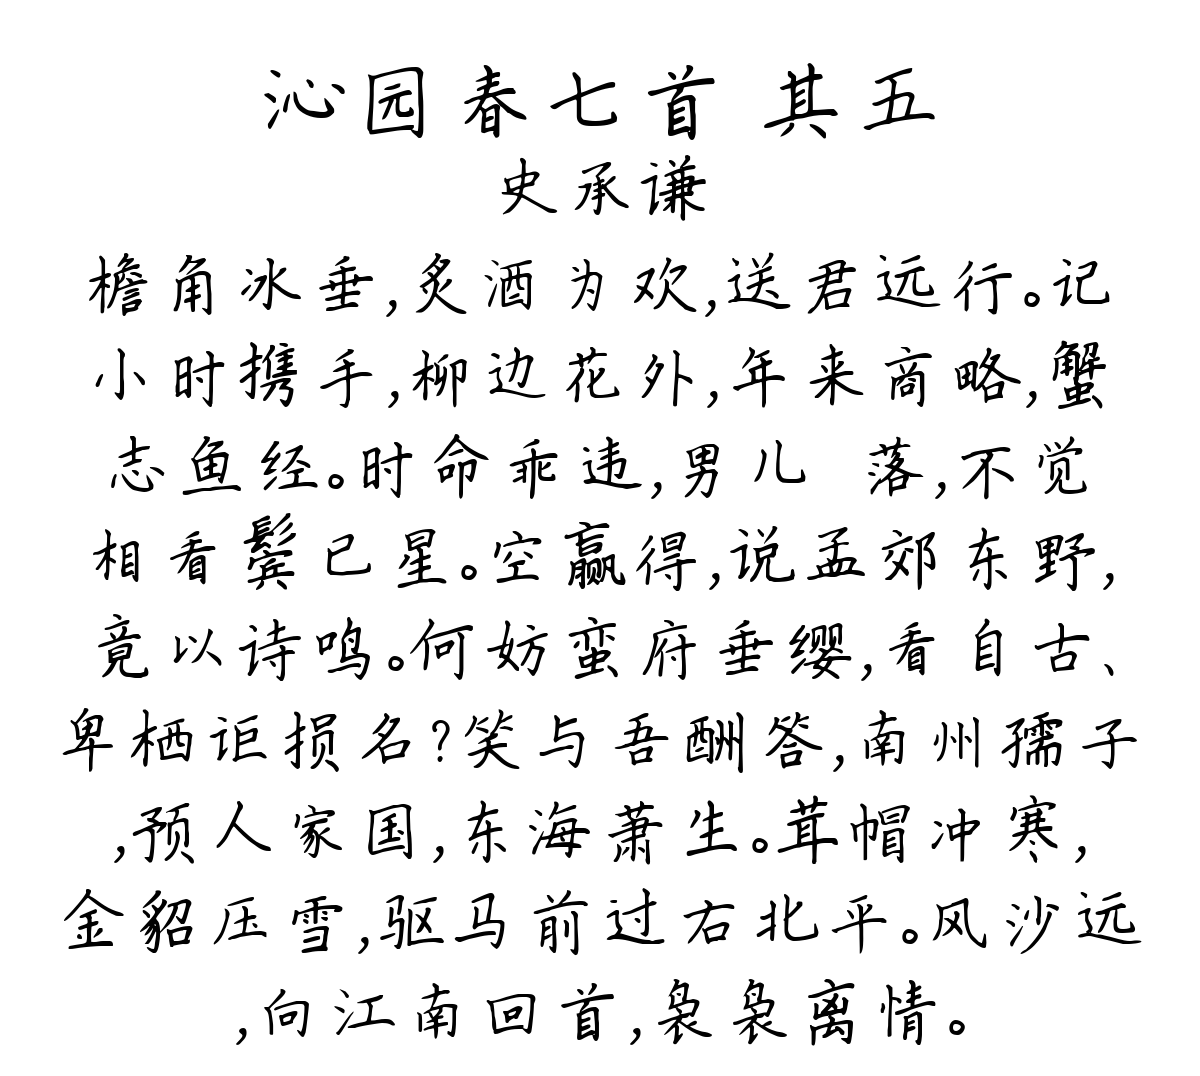 沁园春七首 其五
史承谦
檐角冰垂,炙酒为欢,送君远行。记
小时携手,柳边花外,年来商略,蟹
志鱼经。时命乖违,男儿 落,不觉
相看鬓已星。空赢得,说孟郊东野,
竟以诗鸣。何妨蛮府垂缨,看自古、
卑栖讵损名?笑与吾酬答,南州孺子
,预人家国,东海萧生。茸帽冲寒,
金貂压雪,驱马前过右北平。风沙远
,向江南回首,袅袅离情。